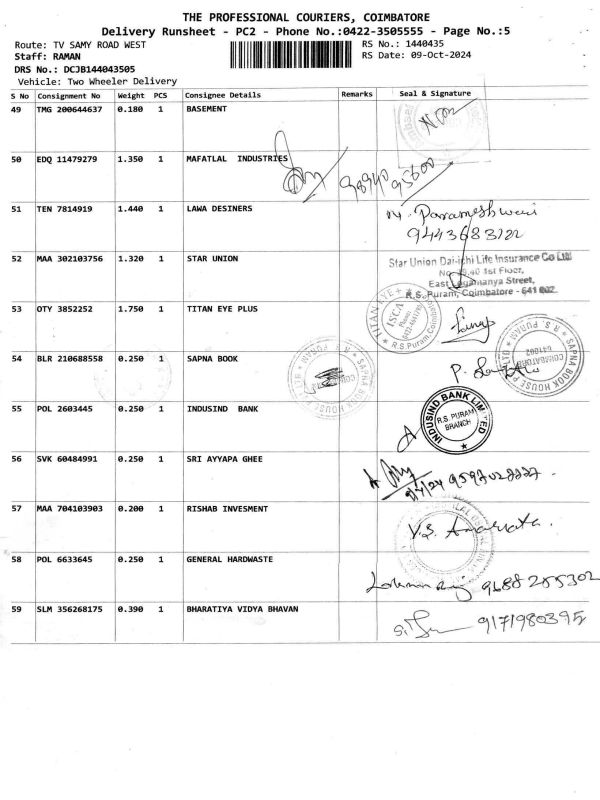 THE PROFESSIONAL COURIERS, COIMBATORE
Delivery Runsheet - PC2 - Phone No.:0422-3505555 - Page No.:5
Route: TV SAMY ROAD WEST
RS No.: 1440435
Staff: RAMAN
RS Date: 09-Oct-2024
DRS No.: DCJB144043505
Vehicle: Two Wheeler Delivery
S No Consignment No Weight PCS Consignee Details Remarks Seal & Signature
49 TMG 200644637 0.180 1 BASEMENT
50 EDQ 11479279 1.350 1 MAFATLAL INDUSTRIES 98940 95600
51 TEN 7814919 1.440 1 LAWA DESINERS M. Parameshwari
9443683122
52 MAA 302103756 1.320 1 STAR UNION Star Union Dai-ichi Life Insurance Co Ltd
1st Floor,
East Street,
R.S.Puram, Coimbatore - 641 002.
53 OTY 3852252 1.750 1 TITAN EYE PLUS TITAN EYE+
ISCA
R.S.Puram,
54 BLR 210688558 0.250 1 SAPNA BOOK SAPNA BOOK HOUSE R.S. PURAM
SAPNA BOOK HOUSE R.S. PURAM
COIMBATORE
641002
55 POL 2603445 0.250 1 INDUSIND BANK INDUSIND BANK LIMITED
R.S. PURAM
BRANCH
56 SVK 60484991 0.250 1 SRI AYYAPA GHEE
57 MAA 704103903 0.200 1 RISHAB INVESMENT
58 POL 6633645 0.250 1 GENERAL HARDWASTE 9688255302
59 SLM 356268175 0.390 1 BHARATIYA VIDYA BHAVAN 9171980395